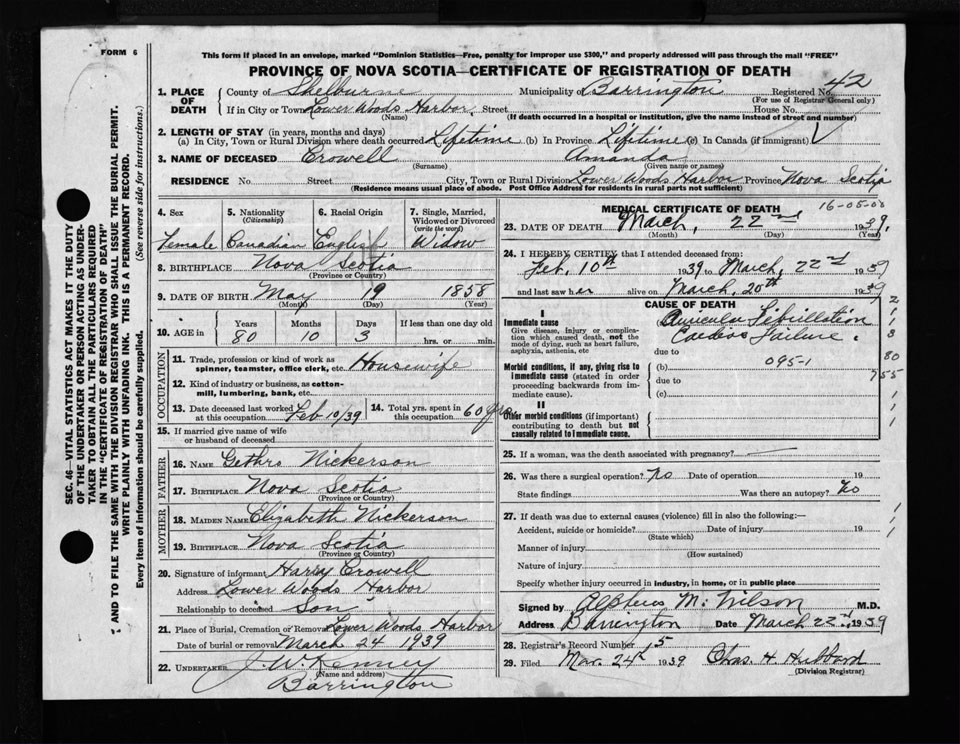 FORM 6
This form if placed in an envelope, marked "Dominion Statistics—Free, penalty for improper use $300," and properly addressed will pass through the mail "FREE"
PROVINCE OF NOVA SCOTIA—CERTIFICATE OF REGISTRATION OF DEATH
SEC. 46 – VITAL STATISTICS ACT MAKES IT THE DUTY
OF THE UNDERTAKER OR PERSON ACTING AS UNDER-
TAKER TO OBTAIN ALL THE PARTICULARS REQUIRED
IN THE "CERTIFICATE OF REGISTRATION OF DEATH"
AND TO FILE THE SAME WITH THE DIVISION REGISTRAR WHO SHALL ISSUE THE BURIAL PERMIT.
WRITE PLAINLY WITH UNFADING INK. THIS IS A PERMANENT RECORD.
Every item of information should be carefully supplied. (See reverse side for instructions.)
1. PLACE OF DEATH
County of Shelburne Municipality of Barrington Registered No. 42
(For use of Registrar General only)
If in City or Town Lower Woods Harbor Street House No.
(Name) (If death occurred in a hospital or institution, give the name instead of street and number)
2. LENGTH OF STAY (in years, months and days)
(a) In City, Town or Rural Division where death occurred Lifetime (b) In Province Lifetime (c) In Canada (if immigrant)
3. NAME OF DECEASED Crowell Amanda
(Surname) (Given name or names)
RESIDENCE No. Street City, Town or Rural Division Lower Woods Harbor Province Nova Scotia
(Residence means usual place of abode. Post Office Address for residents in rural parts not sufficient)
4. Sex 5. Nationality (Citizenship) 6. Racial Origin 7. Single, Married, Widowed or Divorced (write the word)
Female Canadian English Widow
8. BIRTHPLACE Nova Scotia
(Province or Country)
9. DATE OF BIRTH May 19 1858
(Month) (Day) (Year)
10. AGE in Years Months Days If less than one day old
80 10 3 hrs. or min.
OCCUPATION
11. Trade, profession or kind of work as
spinner, teamster, office clerk, etc. Housewife
12. Kind of industry or business, as cotton-
mill, lumbering, bank, etc.
13. Date deceased last worked at this occupation Feb 10/39 14. Total yrs. spent in this occupation 60 yrs
15. If married give name of wife
or husband of deceased
FATHER
16. NAME Gethro Nickerson
17. BIRTHPLACE Nova Scotia
(Province or Country)
MOTHER
18. MAIDEN NAME Elizabeth Nickerson
19. BIRTHPLACE Nova Scotia
(Province or Country)
20. Signature of informant Harry Crowell
Address Lower Woods Harbor
Relationship to deceased Son
21. Place of Burial, Cremation or Removal Lower Woods Harbor
Date of burial or removal March 24 1939
22. UNDERTAKER J. W. Kenney
(Name and address)
Barrington
MEDICAL CERTIFICATE OF DEATH 16-05-00
23. DATE OF DEATH March, 22nd 1939,
(Month) (Day) (Year)
24. I HEREBY CERTIFY that I attended deceased from:
Feb, 10th 1939 to March, 22nd 1939
and last saw her alive on March, 20th 1939
CAUSE OF DEATH
I
Immediate cause
Give disease, injury or complica-
tion which caused death, not the
mode of dying, such as heart failure,
asphyxia, asthenia, etc
(a) Auricular Fibrillation
Cardiac Failure.
due to
Morbid conditions, if any, giving rise to
immediate cause (stated in order
proceeding backwards from im-
mediate cause).
(b) 095-1
due to
(c)
II
Other morbid conditions (if important)
contributing to death but not
causally related to immediate cause.
80
755
25. If a woman, was the death associated with pregnancy?
26. Was there a surgical operation? no Date of operation 19
State findings Was there an autopsy? no
27. If death was due to external causes (violence) fill in also the following:—
Accident, suicide or homicide? Date of injury 19
(State which)
Manner of injury
(How sustained)
Nature of injury
Specify whether injury occurred in industry, in home, or in public place
Signed by Alpheus M. Wilson M.D.
Address Barrington Date March 22nd, 1939
28. Registrar's Record Number 5
29. Filed Mar. 24th 1939 Chas. H Hubbard
(Division Registrar)